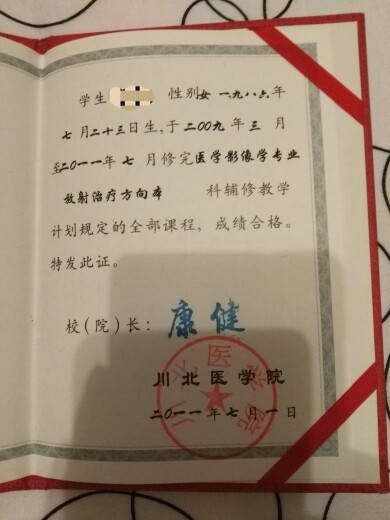 学生 性别女 一九八六年
七月二十三日生,于二00九年三月
至二0一一年七月修完医学影像学专业
放射治疗方向本 科辅修教学
计划规定的全部课程,成绩合格。
特发此证。
校(院)长:康健
川北医学院
川北医学院
二0一一年七月一日